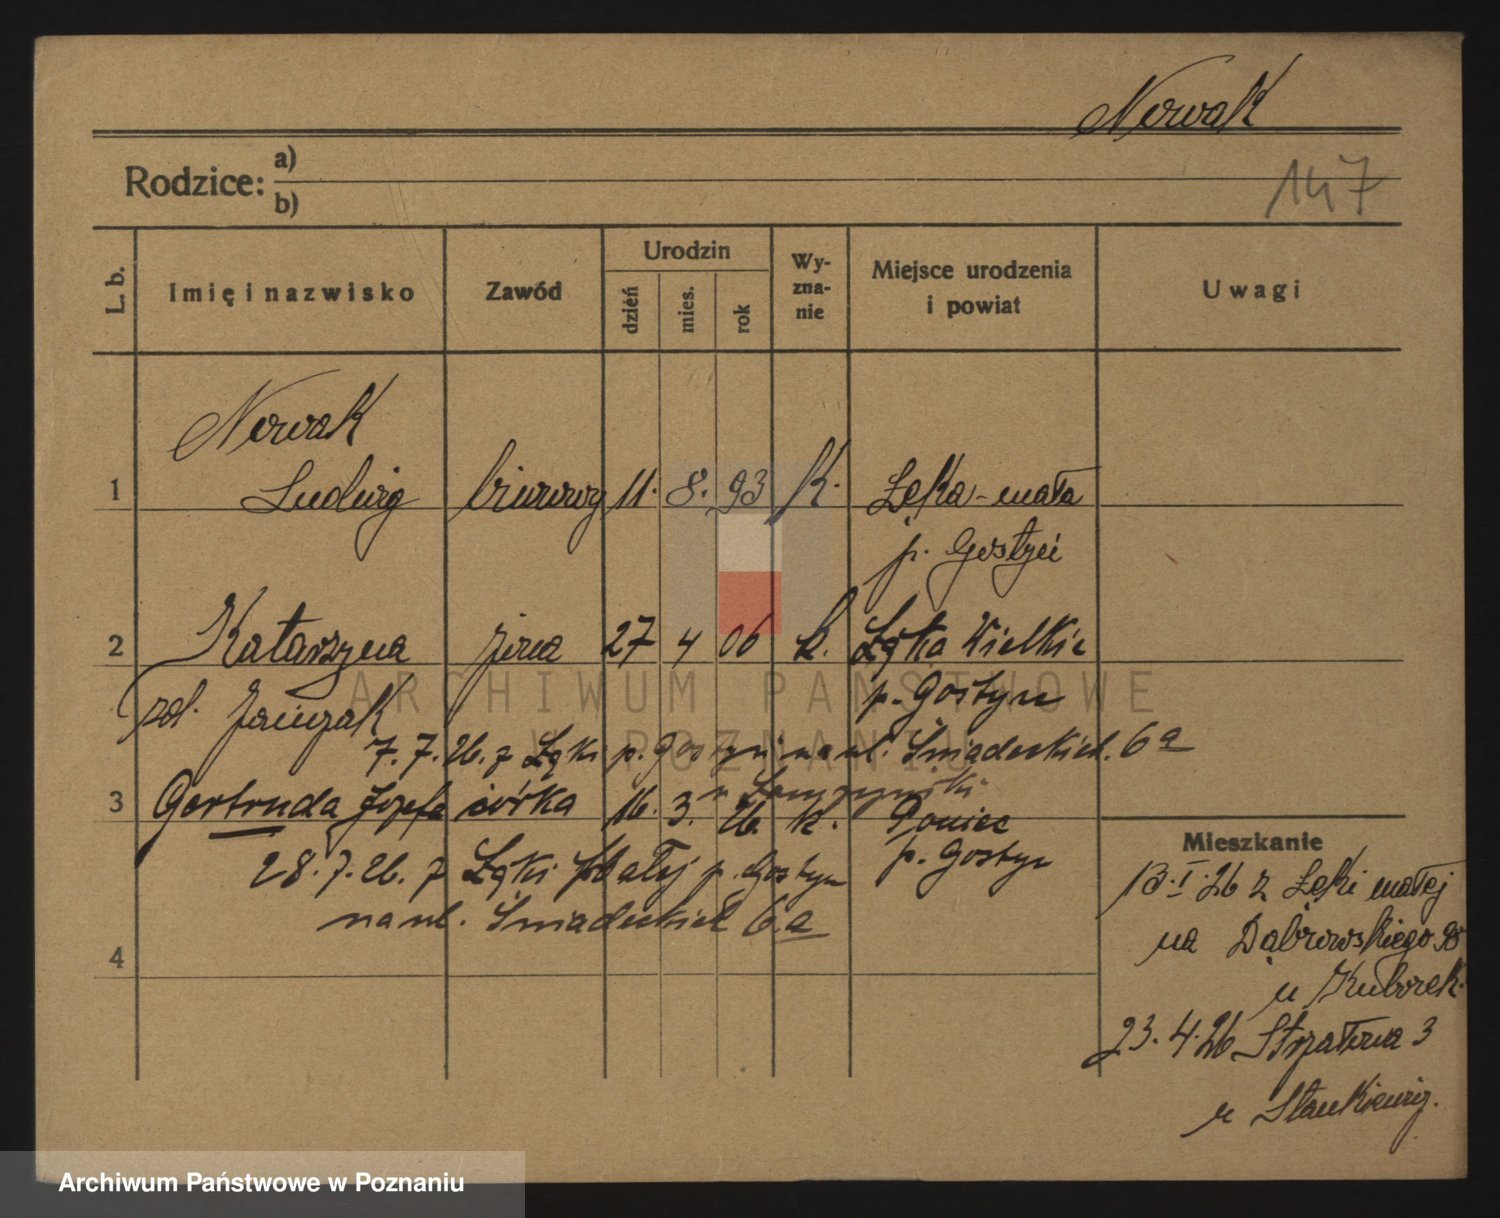 Nowak
Rodzice: a)
b)
147
L. b.
Imię i nazwisko
Zawód
Urodzin
dzień
mies.
rok
Wy-
zna-
nie
Miejsce urodzenia
i powiat
Uwagi
Nowak
1 Ludwig biurowy 11. 8. 93 k. Łęka-mała
p. Gostyń
2 Katarzyna żona 27 4 06 k. Łęka Wielkie
zd. p. Gostyn
7. 7. 26. z Łęki p. Gostyń na ul. Śniadeckich. 6a
3 Gertruda Józefa córka 16. 3. 26. k. Poniec
p. Gostyn
28. 7. 26. z Łęki Małej p. Gostyn
na ul. Śniadeckich 6.a
4
Mieszkanie
13. I. 26 z Łęki małej
na Dąbrowskiego
u Kuborek.
23. 4. 26 Strzałowa 3
u Stankiewicz.
ARCHIWUM PAŃSTWOWE
W POZNANIU
Archiwum Państwowe w Poznaniu